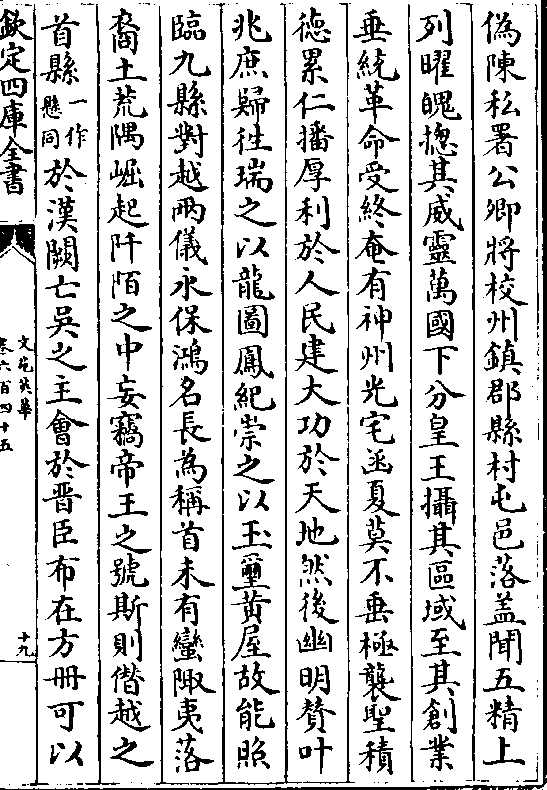 偽陳私署公卿將校州鎮郡縣村屯邑落盖聞五精上
列曜魄揔其威靈萬國下分皇王攝其區域至其創業
垂統革命受終奄有神州光宅函夏莫不垂極襲聖積
徳累仁播厚利於人民建大功於天地然後幽明賛叶
兆庶歸往瑞之以龍圖鳳紀崇之以玉璽黄屋故能照
臨九縣對越兩儀永保鴻名長為稱首未有蠻陬夷落
裔土荒隅崛起阡陌之中妄竊帝王之號斯則僭越之
首縣一作懸同於漢闕亡吳之主會於晉臣布在方冊可以
欽定四庫全書
文苑英華
卷六百四十五
十九